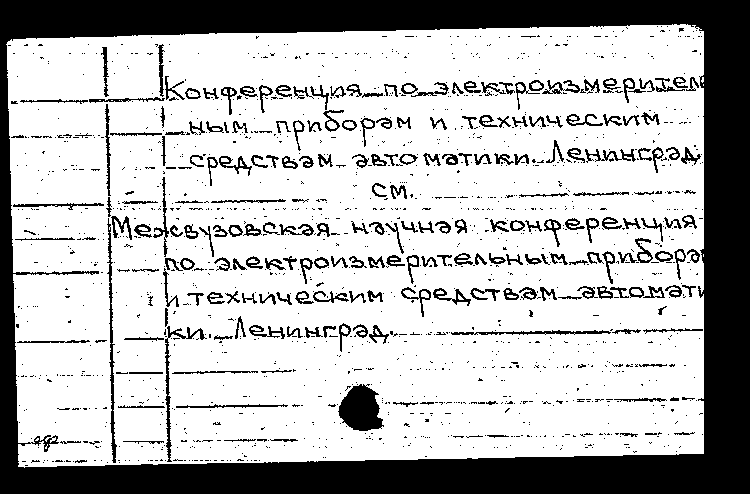 Конференция по электроизмеритель
ным приборам и техническим
средствам автоматики. Ленинград.
см.
Межвузовская научная конференция
по электроизмерительным прибора
и техническим средствам автомати
ки. Ленинград.